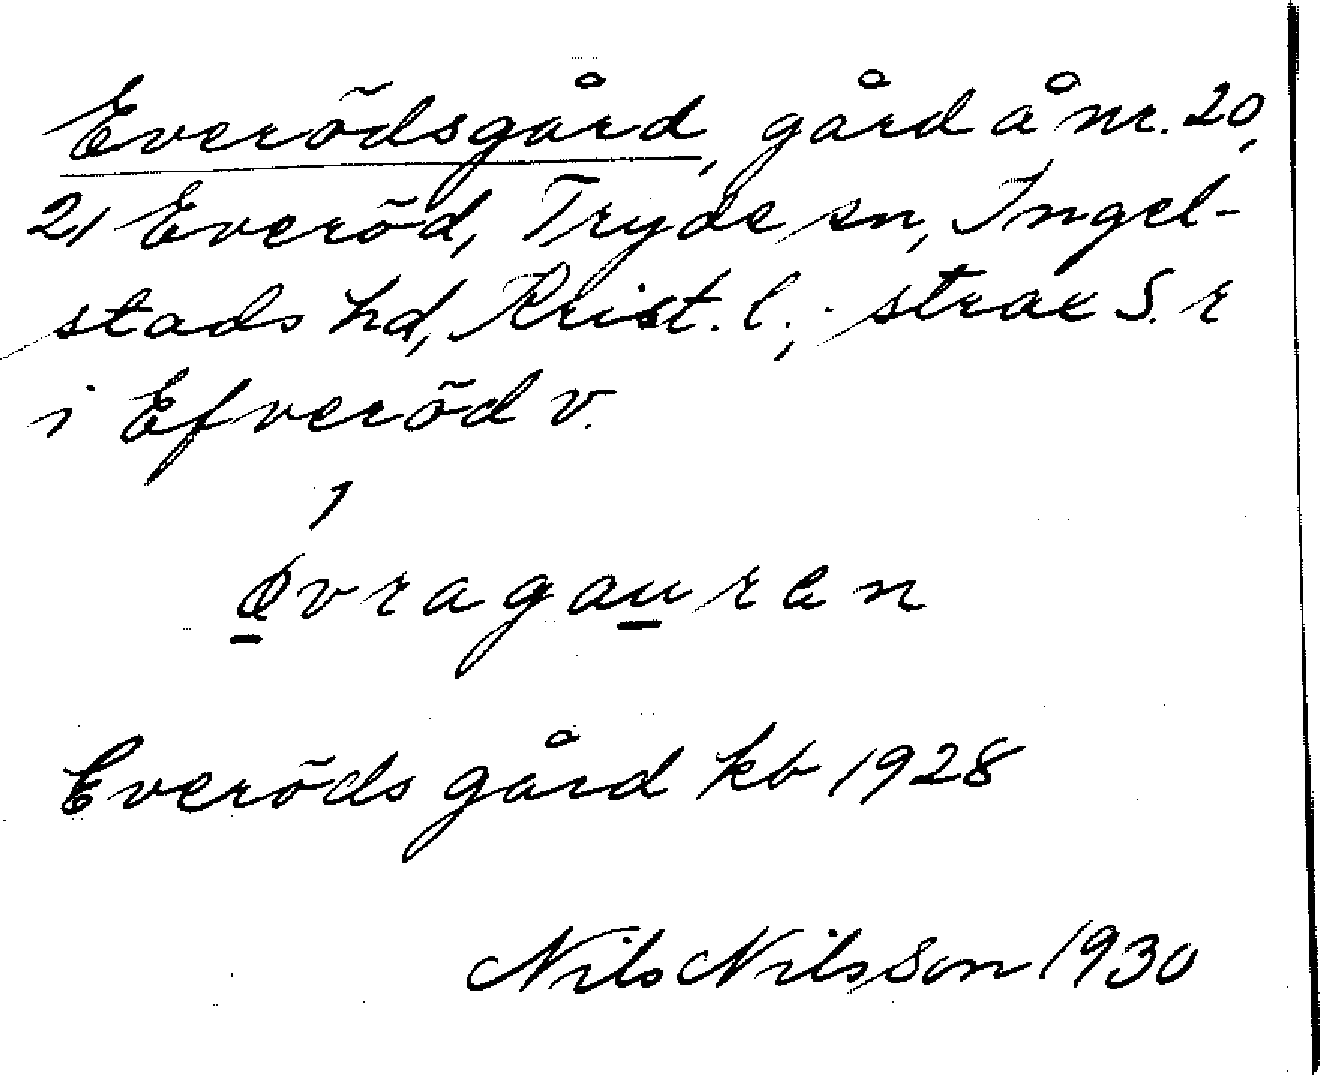 Everödsgård, gård å nr. 20,
21 Everöd, Tryde sn, Ingel-
stads hd, Krist. l.; strax S. r
i Efveröd v.
1
øvragauren
Everöds gård kb 1928
Nils Nilsson 1930